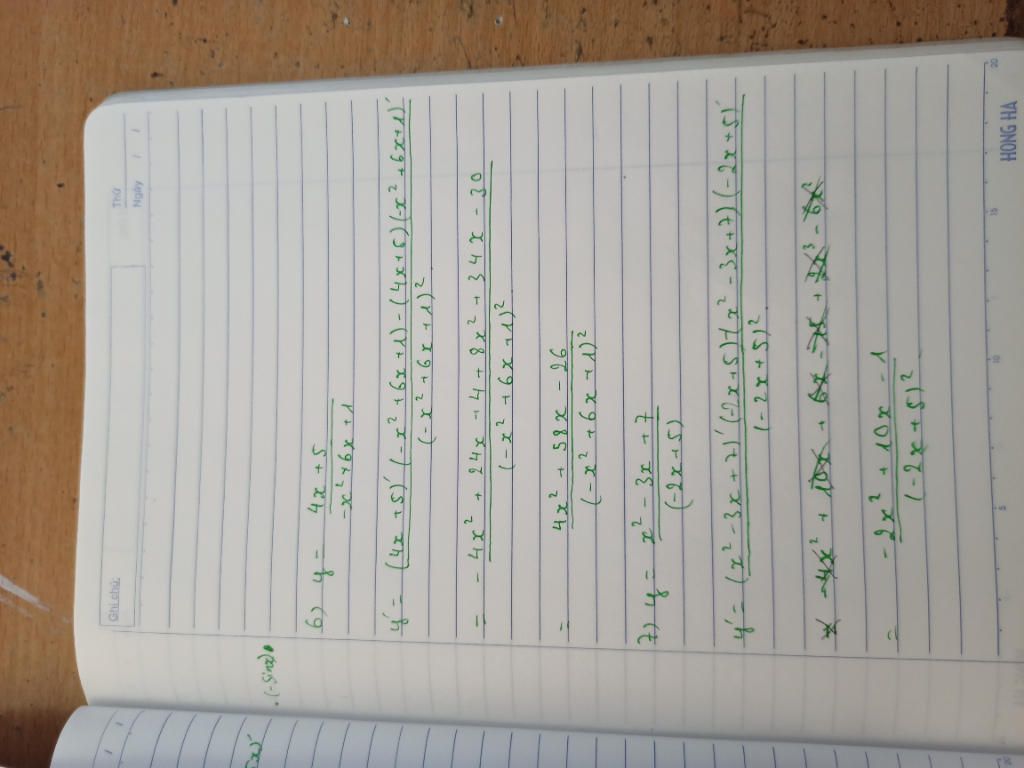 Ghi chú:
Thứ
Ngày / /
.(-Sinx)
6) y = (4x + 5) / (-x² + 6x + 1)
y' = ((4x + 5)' (-x² + 6x + 1) - (4x + 5) (-x² + 6x + 1)') / (-x² + 6x + 1)²
= (-4x² + 24x + 4 + 8x² + 34x - 30) / (-x² + 6x + 1)²
= (4x² + 58x - 26) / (-x² + 6x + 1)²
7) y = (x² - 3x + 7) / (-2x + 5)
y' = ((x² - 3x + 7)' (-2x + 5) - (x² - 3x + 7) (-2x + 5)') / (-2x + 5)²
= (-2x² + 10x - 1) / (-2x + 5)²
5 10 15 20
HONG HA